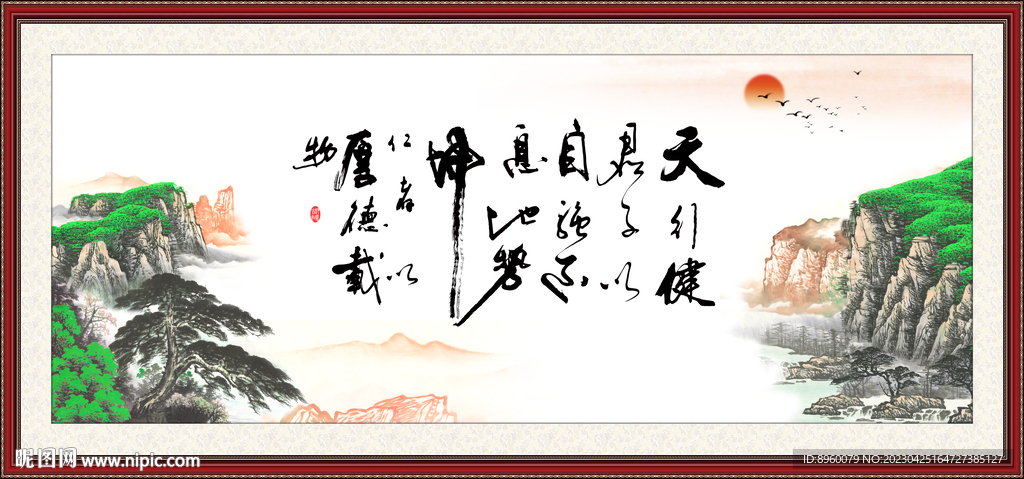 天行健
君子以
自强不
息地势
坤
仁者以
厚德载
物
昵图网 www.nipic.com
ID:8960079 NO:20230425164727385127